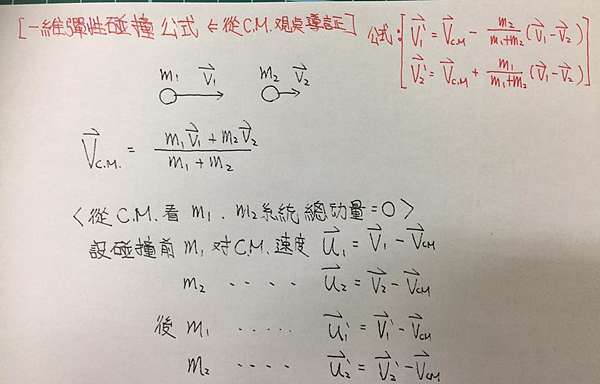 [一維彈性碰撞公式 ← 從C.M.觀点導証] 公式:
V⃗₁' = V⃗C.M - m₂/(m₁+m₂) (V⃗₁ - V⃗₂)
V⃗₂' = V⃗C.M + m₁/(m₁+m₂) (V⃗₁ - V⃗₂)
m₁ V⃗₁ m₂ V⃗₂
V⃗C.M. = (m₁V⃗₁ + m₂V⃗₂)/(m₁ + m₂)
<從C.M.看 m₁、m₂系統總动量=0>
設碰撞前 m₁ 对C.M.速度 u⃗₁ = V⃗₁ - V⃗CM
m₂ ‥‥ u⃗₂ = V⃗₂ - V⃗CM
後 m₁ ..... u⃗₁' = V⃗₁' - V⃗CM
m₂ ‥‥ u⃗₂' = V⃗₂' - V⃗CM